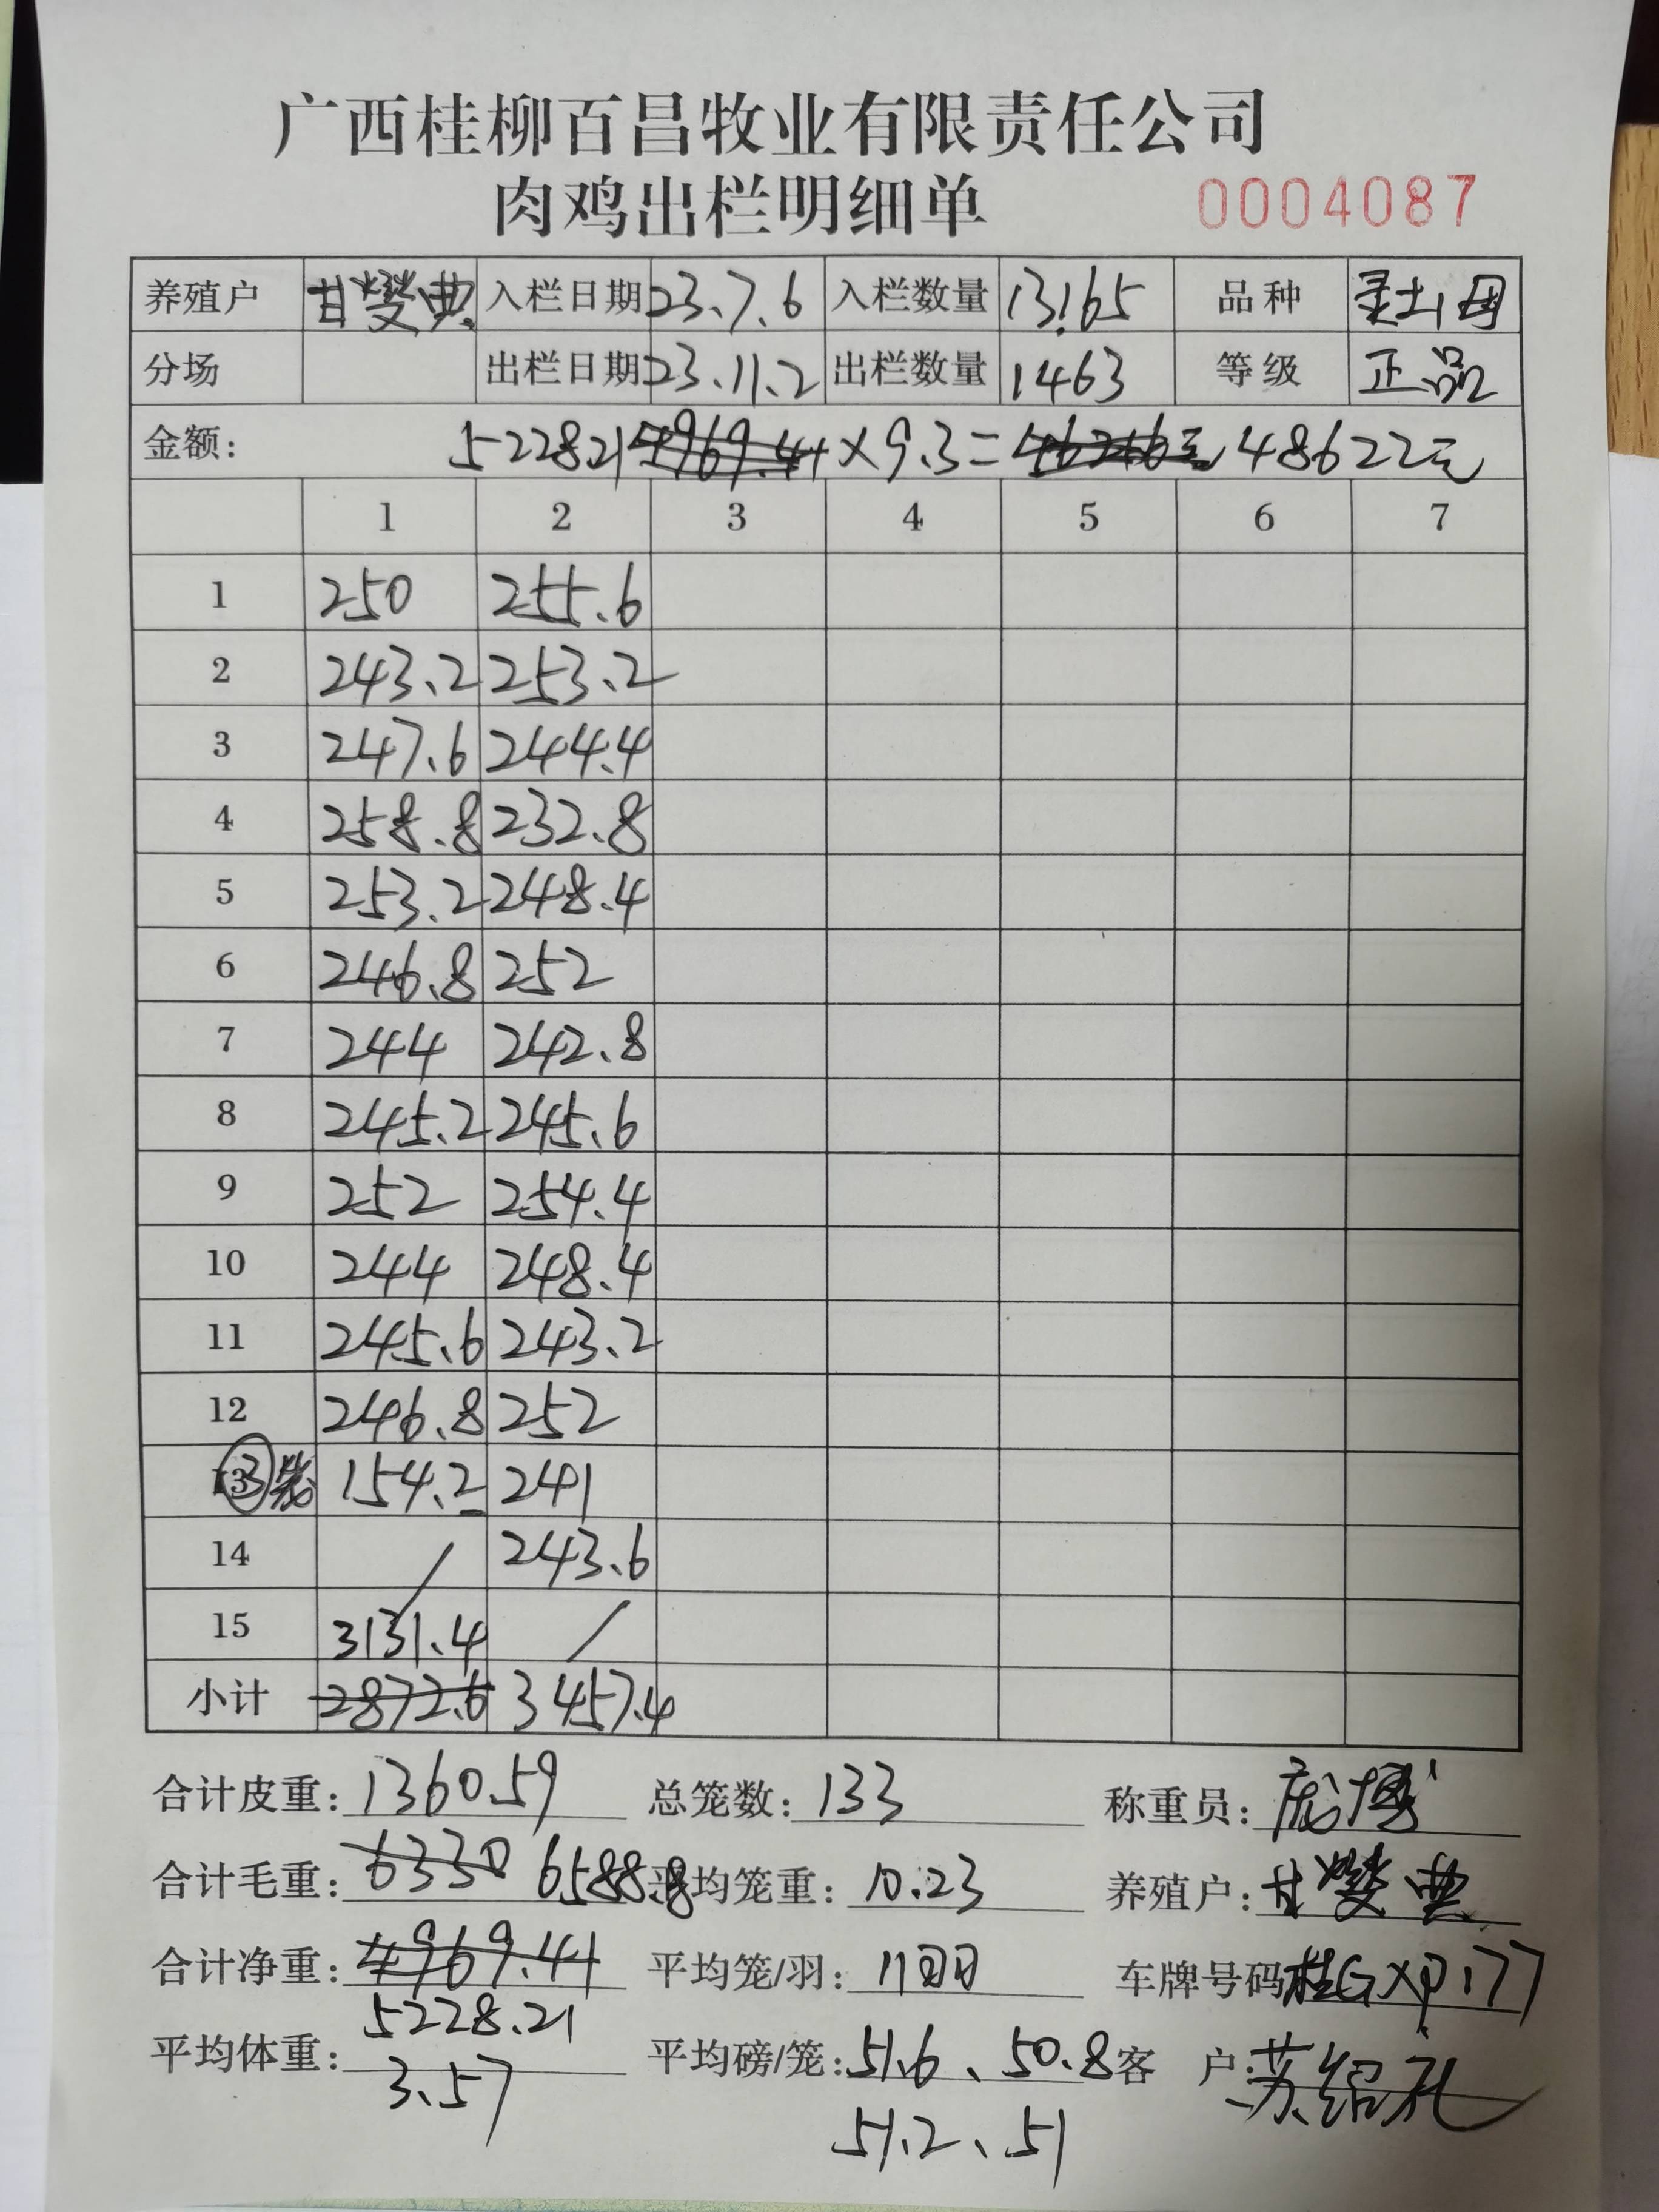 广西桂柳百昌牧业有限责任公司
肉鸡出栏明细单 0004087
养殖户 甘燮典 入栏日期 23.7.6 入栏数量 13165 品种 土1号
分场 出栏日期 23.11.2 出栏数量 1463 等级 正品
金额: 5228.21 4969.41 × 9.3 = 46216元 48622元
1 2 3 4 5 6 7
1 250 255.6
2 243.2 253.2
3 247.6 244.4
4 258.8 232.8
5 253.2 248.4
6 246.8 252
7 244 242.8
8 245.2 245.6
9 252 254.4
10 244 248.4
11 245.6 243.2
12 246.8 252
13 ③笼 154.2 241
14 / 243.6
15 3131.4 /
小计 2872.6 3457.4
合计皮重: 1360.59 总笼数: 133 称重员: 庞博
合计毛重: 6330 6588.8 平均笼重: 10.23 养殖户: 甘燮典
合计净重: 4969.41 平均笼/羽: 11 车牌号码 桂GXP177
5228.21
平均体重: 3.57 平均磅/笼: 51.6、50.8 客 户: 苏绍礼
51.2、51